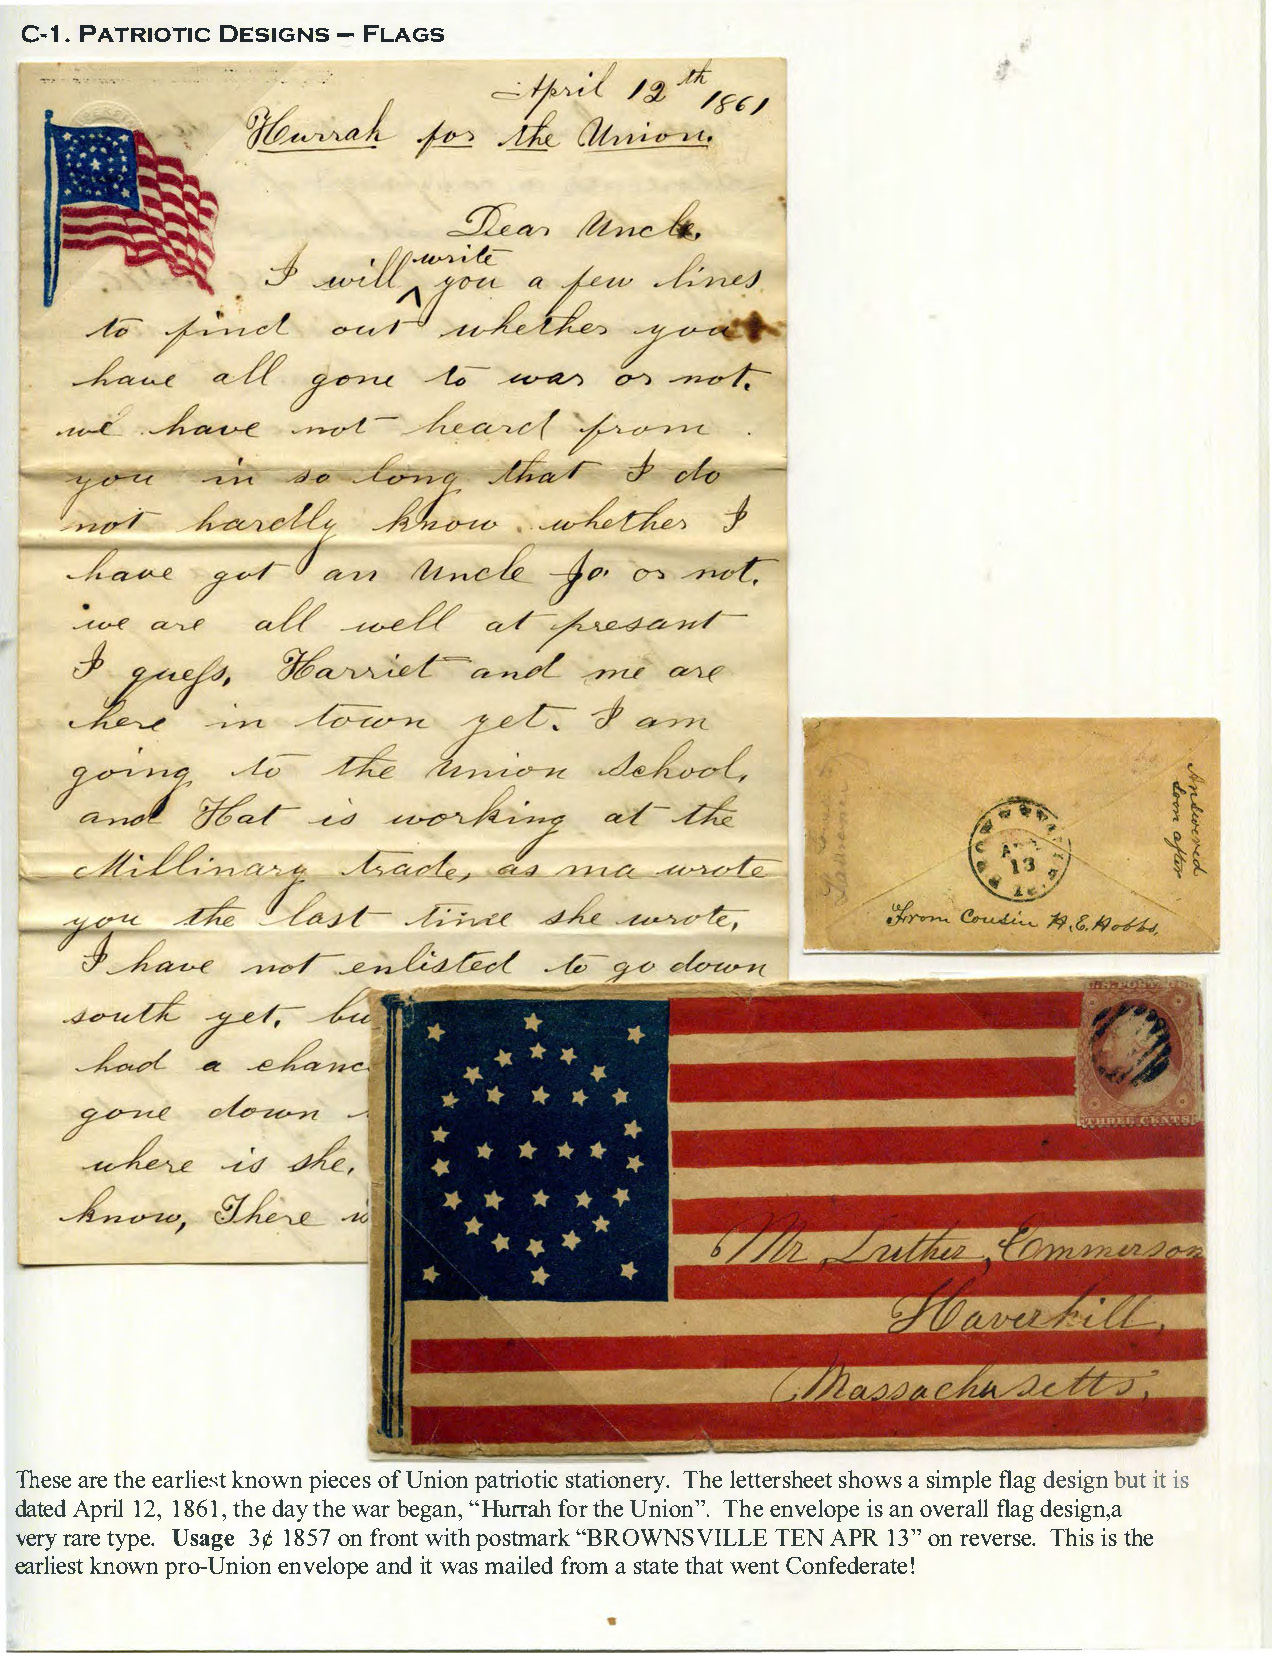 C-1. PATRIOTIC DESIGNS – FLAGS
April 12th 1861
Hurrah for the Union.
Dear Uncle.
I will write you a few lines
to find out whether you
have all gone to war or not.
we have not heard from
you in so long that I do
not hardly know whether I
have got an Uncle Jo. or not.
we are all well at presant
I guess, Harriet and me are
here in town yet. I am
going to the Union School,
and Hat is working at the
Millinary trade, as ma wrote
you the last time she wrote,
I have not enlisted to go down
south yet, bu
had a chanc
gone down
where is she,
know, There
Answered
soon after
APR
13
From Cousin H.E. Hobbs.
U.S. POSTAGE
THREE CENTS
Mr Luther, Emmerson
Haverhill,
Massachusetts,
These are the earliest known pieces of Union patriotic stationery. The lettersheet shows a simple flag design but it is
dated April 12, 1861, the day the war began, “Hurrah for the Union”. The envelope is an overall flag design,a
very rare type. Usage 3¢ 1857 on front with postmark “BROWNSVILLE TEN APR 13” on reverse. This is the
earliest known pro-Union envelope and it was mailed from a state that went Confederate!